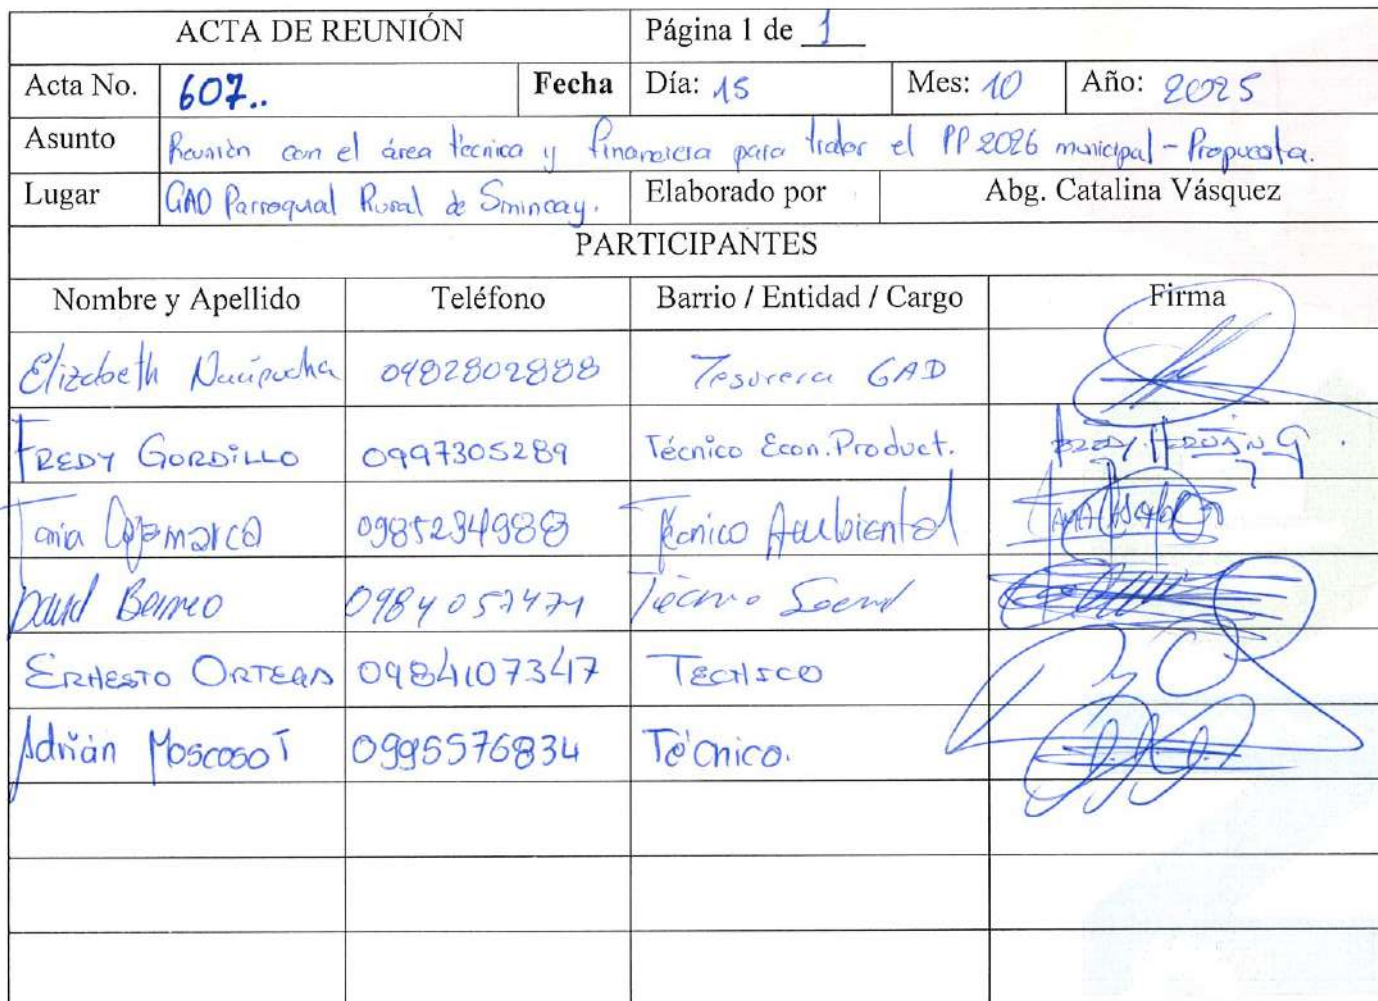 ACTA DE REUNIÓN Página 1 de 1
Acta No. 607.. Fecha Día: 15 Mes: 10 Año: 2025
Asunto Reunión con el área técnica y financiera para tratar el PP 2026 municipal - Propuesta.
Lugar GAD Parroquial Rural de Sinincay. Elaborado por Abg. Catalina Vásquez
PARTICIPANTES
Nombre y Apellido Teléfono Barrio / Entidad / Cargo Firma
Elizabeth 0982802888 Tesorera GAD
FREDY GORDILLO 0997305289 Técnico Econ. Product.
Tania Cajamarca 0985234988 Técnico Ambiental
David Bermeo 0984057471 Técnico Social
ERNESTO ORTEGA 0984107347 TECNICO
Adrián Moscoso T 0995576834 Técnico.